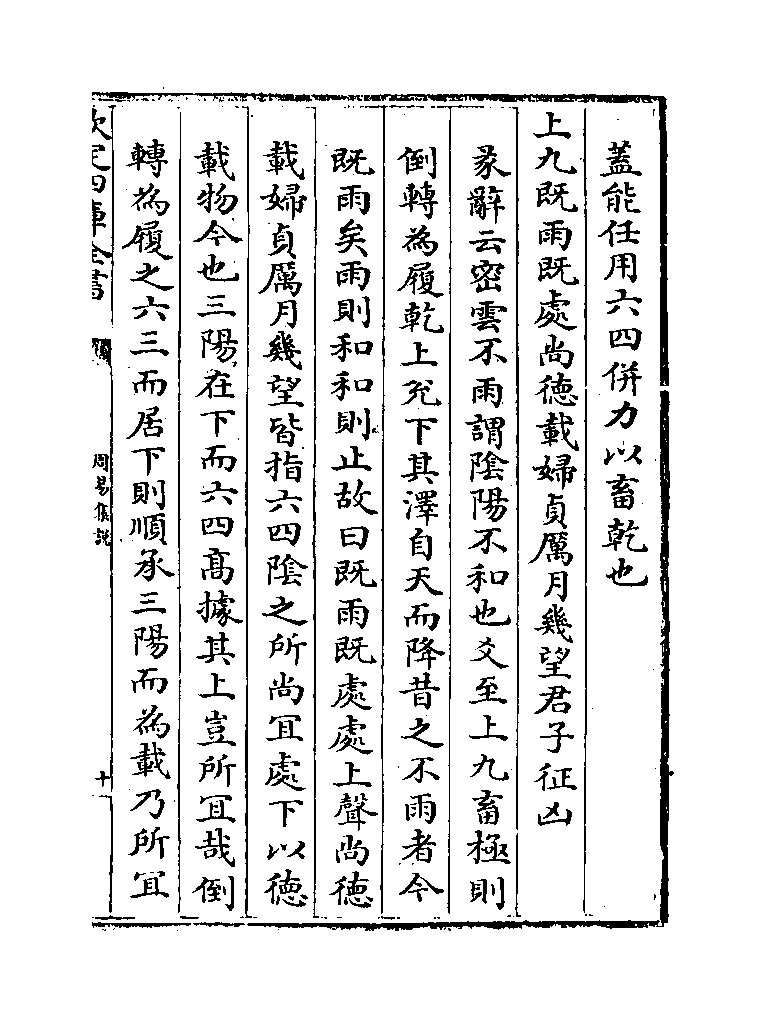 蓋能任用六四併力以畜乾也
上九既雨既處尚德載婦貞厲月幾望君子征凶
彖辭云密雲不雨謂陰陽不和也爻至上九畜極則
倒轉為履乾上兊下其澤自天而降昔之不雨者今
既雨矣雨則和和則止故曰既雨既處處上聲尚德
載婦貞厲月幾望皆指六四陰之所尚冝處下以德
載物今也三陽在下而六四髙據其上豈所冝哉倒
轉為履之六三而居下則順承三陽而為載乃所冝
欽定四庫全書
周易集說
十